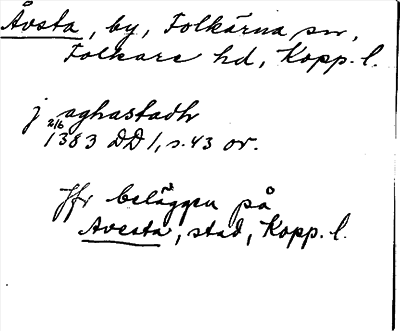 Åvsta, by, Folkärna sn,
Folkare hd, Kopp. l.
j aghastadh
2/6 1383 DD 1, s. 43 or.
Jfr beläggen på
Avesta, stad, Kopp. l.